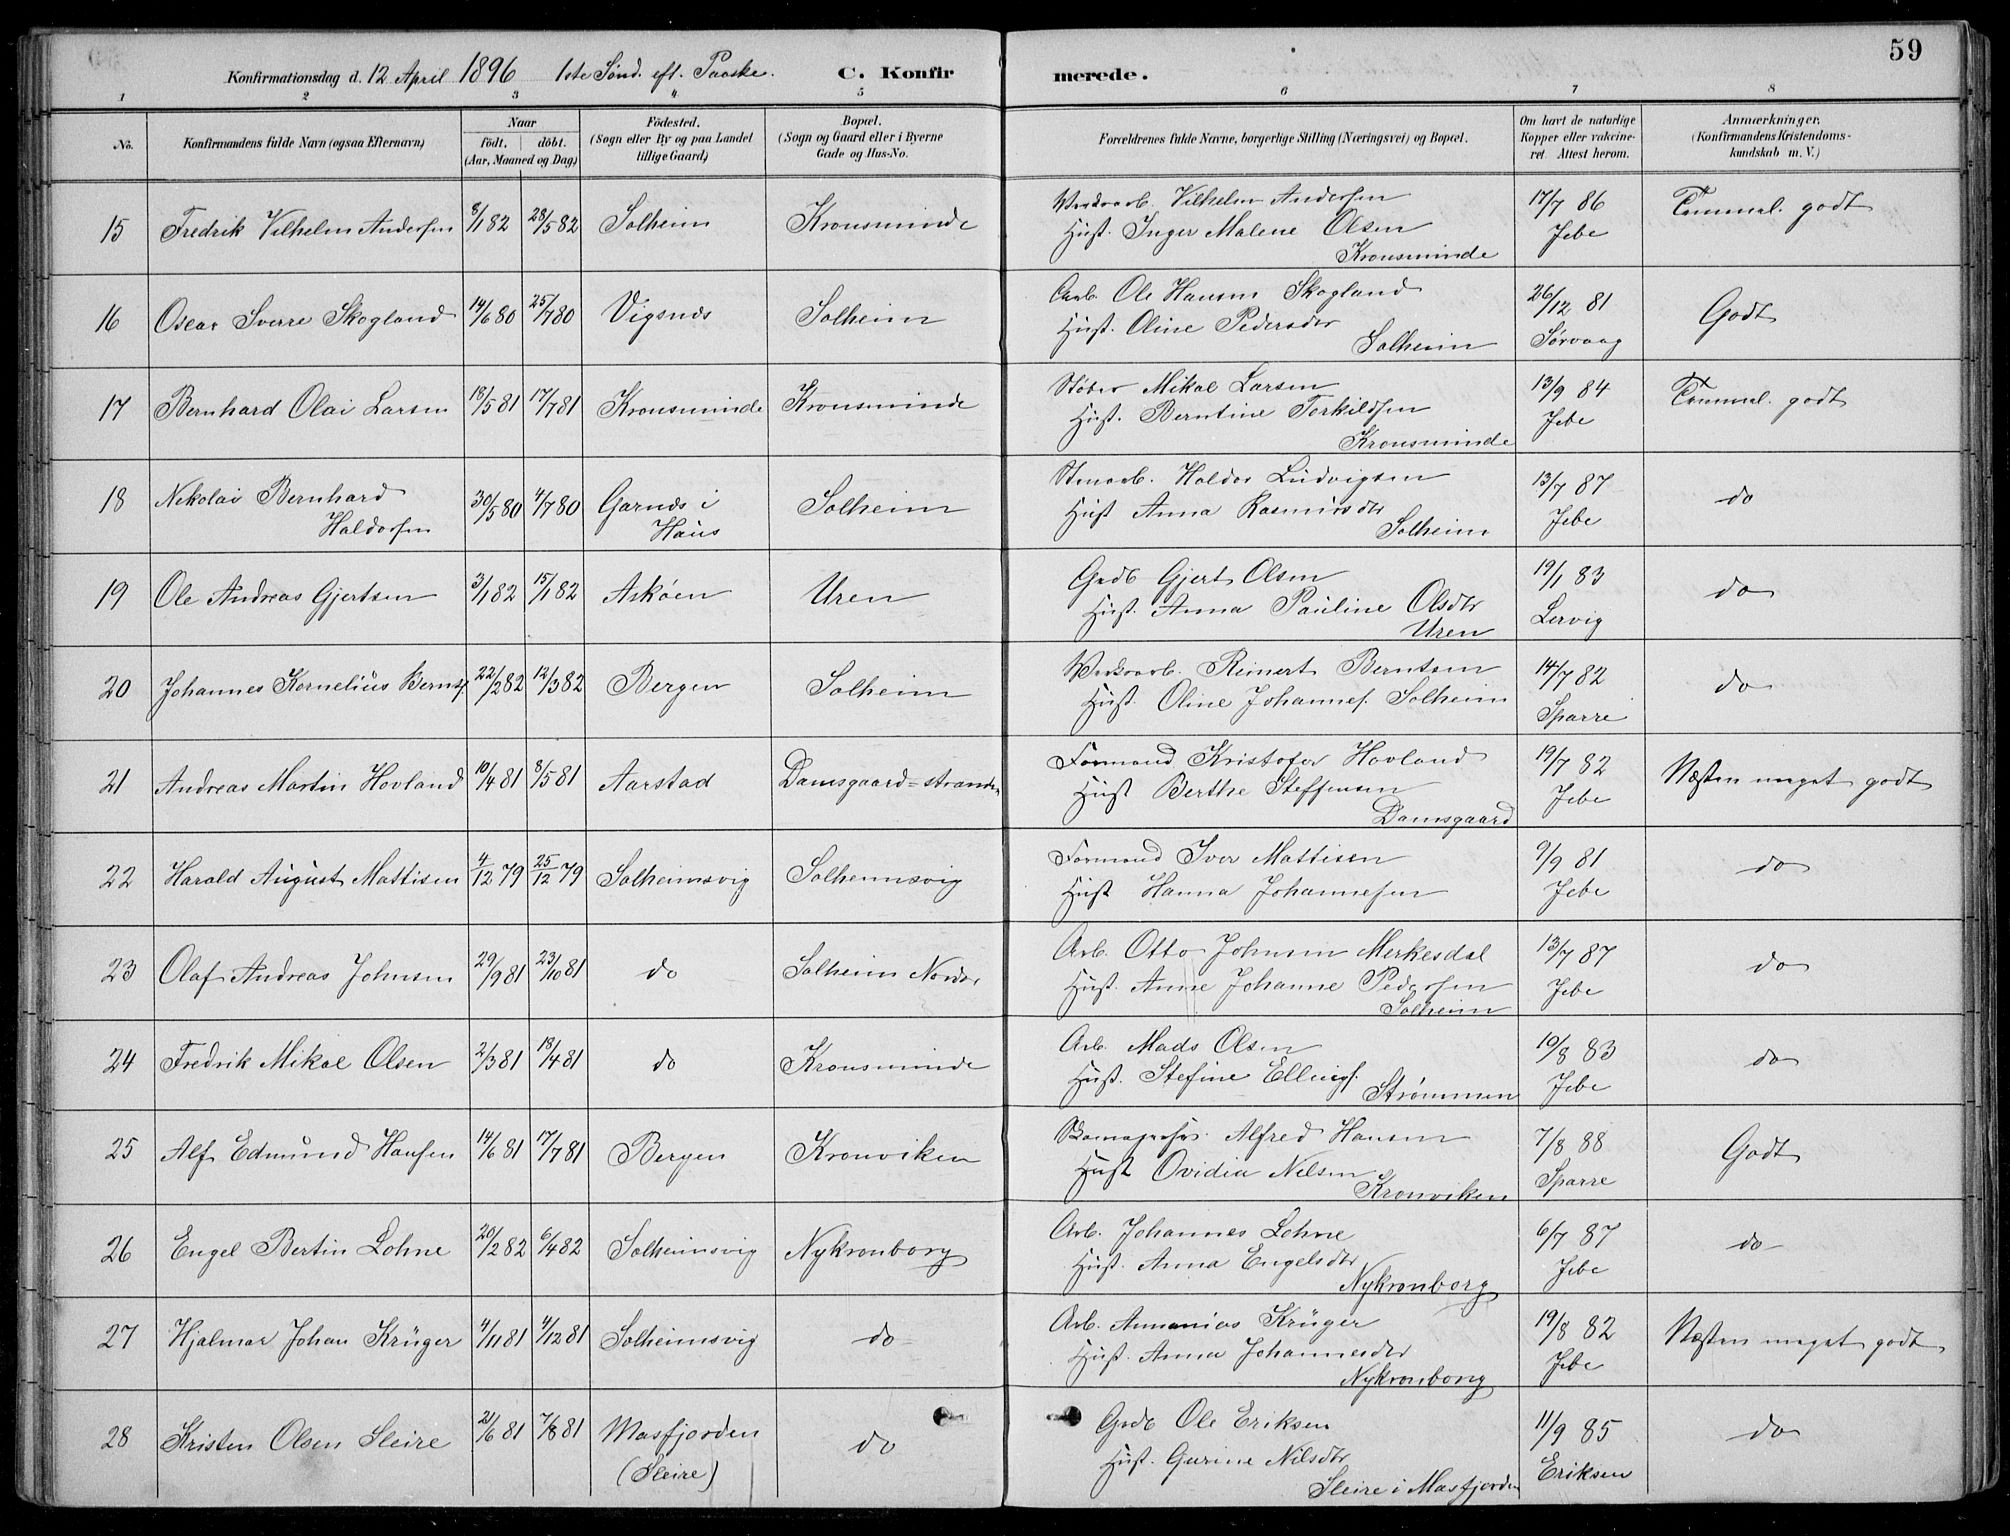 59
Konfirmationsdag d. 12 April 1896 1ste Sønd. eft. Paaske. C. Konfirmerede.
1 2 3 4 5 6 7 8
No. Konfirmandens fulde Navn (ogsaa Efternavn) Naar født. døbt. (Aar, Maaned og Dag) Fødested. (Sogn eller By og paa Landet tillige Gaard) Bopæl. (Sogn og Gaard eller i Byerne Gade og Hus-No. Forældrenes fulde Navne, borgerlige Stilling (Næringsvei) og Bopæl. Om havt de naturlige Kopper eller vakcineret. Attest herom. Anmærkninger. (Konfirmandens Kristendomskundskab m. V.)
15 Fredrik Vilhelm Andersen 8/1 82 28/5 82 Solheim Kronsminde Verksarb. Vilhelm Andersen 17/7 86 Temmel. godt
Hust. Inger Malene Olsen Jebe
Kronsminde
16 Oscar Sverre Skogland 14/6 80 25/7 80 Vigsnes Solheim Arb. Ole Hansen Skogland 26/12 81 Godt
Hust. Oline Pedersdtr Sørvaag
Solheim
17 Bernhard Olai Larsen 18/5 81 17/7 81 Kronsminde Kronsminde Støber Mikal Larsen 13/9 84 Temmel. godt
Hust. Berntine Torkildsen Jebe
Kronsminde
18 Nikolai Bernhard Haldorsen 30/5 80 4/7 80 Garnæs i Haus Solheim Stenarb. Haldor Ludvigsen 13/7 87 do
Hust Anna Rasmusdtr Jebe
Solheim
19 Ole Andreas Gjertsen 3/1 82 15/1 82 Askøen Uren Grdb Gjert Olsen 19/1 83 do
Hust. Anna Pauline Olsdtr Lervig
Uren
20 Johannes Kornelius Bernts. 22/2 82 12/3 82 Bergen Solheim Verksarb. Reinert Berntsen 14/7 82 do
Hust. Oline Johannes. Solheim Sparre
21 Andreas Martin Hovland 10/4 81 8/5 81 Aarstad Damsgaard=stranden Formand Kristofer Hovland 19/7 82 Næsten meget godt
Hust Berthe Steffensen Jebe
Damsgaard
22 Harald August Mattisen 4/12 79 25/12 79 Solheimsvig Solheimsvig Formand Iver Mattisen 9/9 81 do
Hust Hanna Johannesen Jebe
23 Olaf Andreas Johnsen 29/9 81 23/10 81 do Solheim Nordr Arb. Otto Johnsen Merkesdal 13/7 87 do
Hust. Anne Johanne Pedersen Jebe
Solheim
24 Fredrik Mikal Olsen 2/3 81 18/4 81 do Kronsminde Arb. Mads Olsen 10/8 83 do
Hust. Stefine Ellings. Jebe
Strømmen
25 Alf Edmund Hansen 14/6 81 17/7 81 Bergen Kronviken Skomagersv. Alfred Hansen 7/8 88 Godt
Hust Ovidia Nilsen Sparre
Kronviken
26 Engel Bertin Lohne 20/2 82 6/4 82 Solheimsvig Nykronborg Arb. Johannes Lohne 6/7 87 do
Hust. Anna Engelsdtr Jebe
Nykronborg
27 Hjalmar Johan Krüger 4/11 81 4/12 81 Solheimsvig do Arb. Annanias Krüger 19/8 82 Næsten meget godt
Hust. Anna Johannesdtr Jebe
Nykronborg
28 Kristen Olsen Sleire 21/6 81 7/8 81 Masfjorden (Sleire) do Grdb Ole Eriksen 11/9 85 do
Hust. Gurine Nilsdtr Eriksen
Sleire i Masfjorden